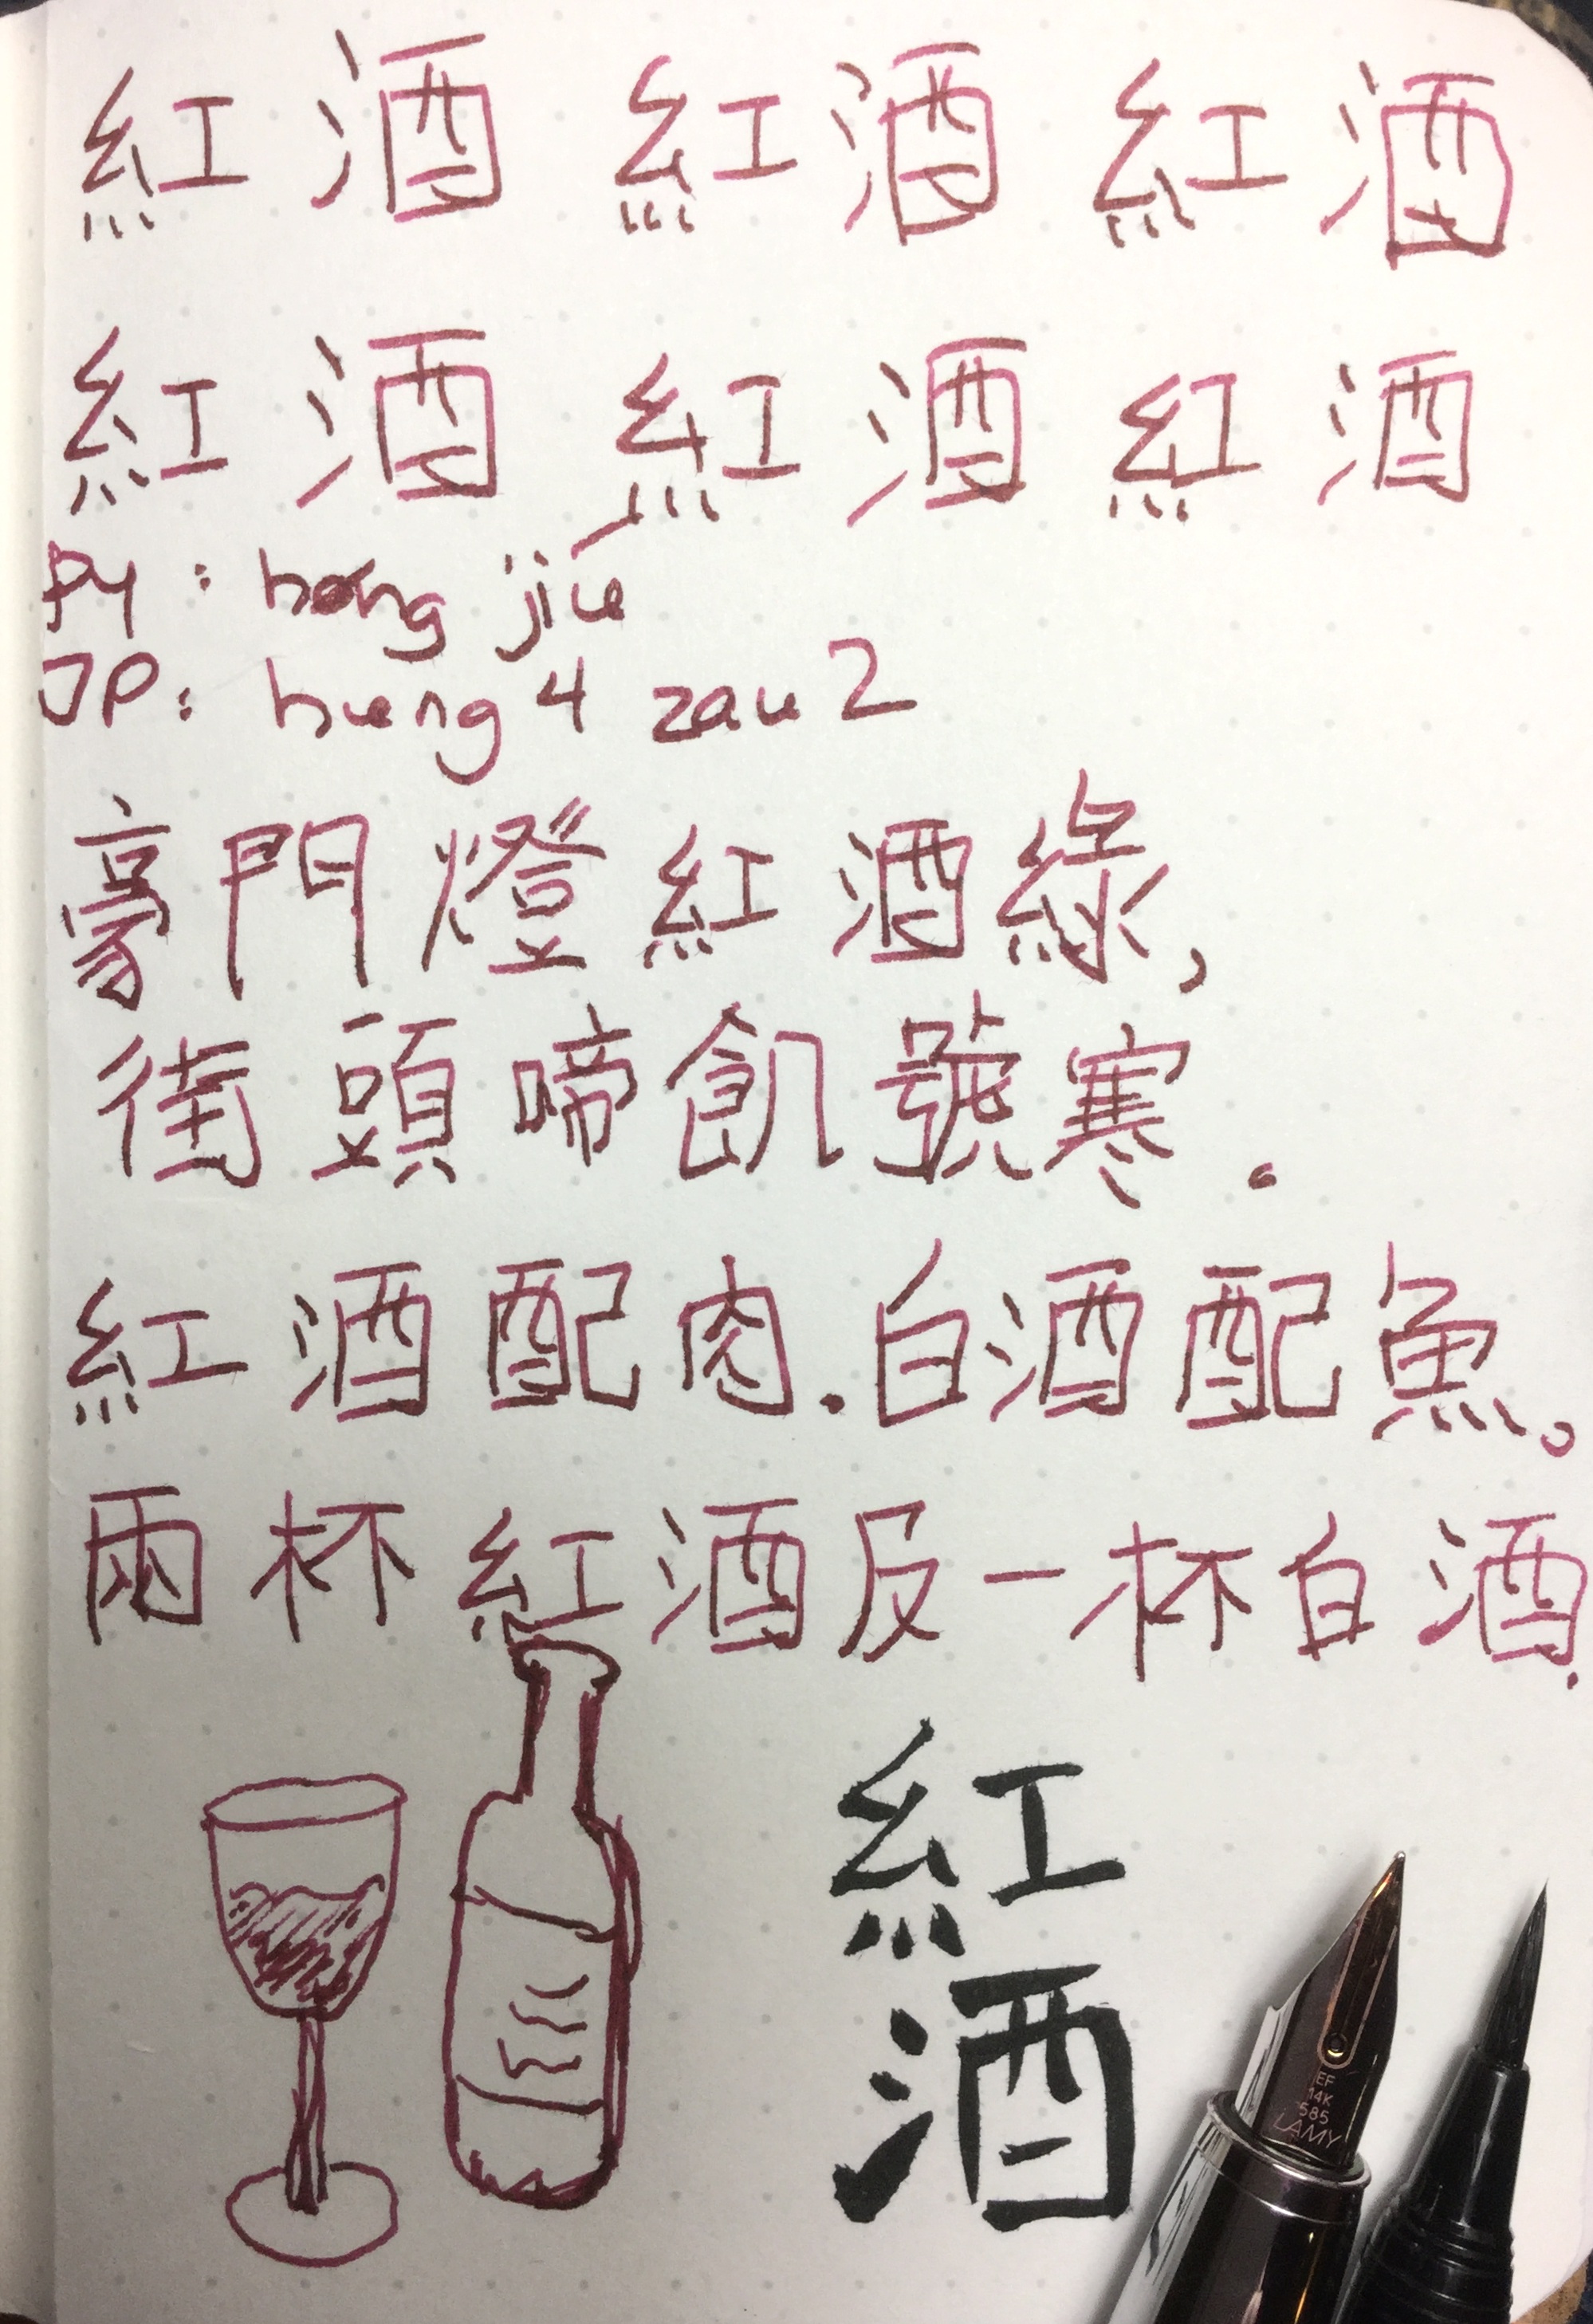 紅酒 紅酒 紅酒
紅酒 紅酒 紅酒
PY: hóng jiǔ
JP: hung4 zau2
豪門燈紅酒綠,
街頭啼飢號寒.
紅酒配肉.白酒配魚。
兩杯紅酒及一杯白酒.
紅
酒
EF
14K
585
LAMY